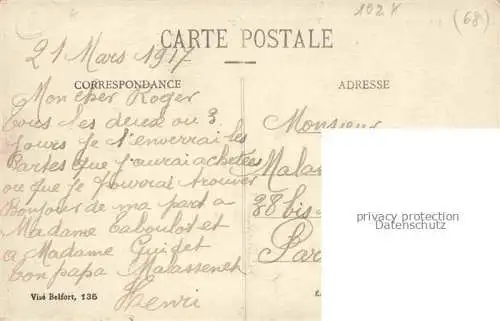 1024
(68)
21 Mars 1917
CARTE POSTALE
CORRESPONDANCE
Mon cher Roger
Tous les deux ou 3
Jours je t'enverrai les
Cartes que j'aurai achetées
ou que je pourrai trouver
Bonjour de ma part a
Madame Taboulot et
a Madame Guidet
ton papa Malassenet
Henri
Visé Belfort, 135
ADRESSE
Monsieur
Malass
38 bis
Par
privacy protection
Datenschutz